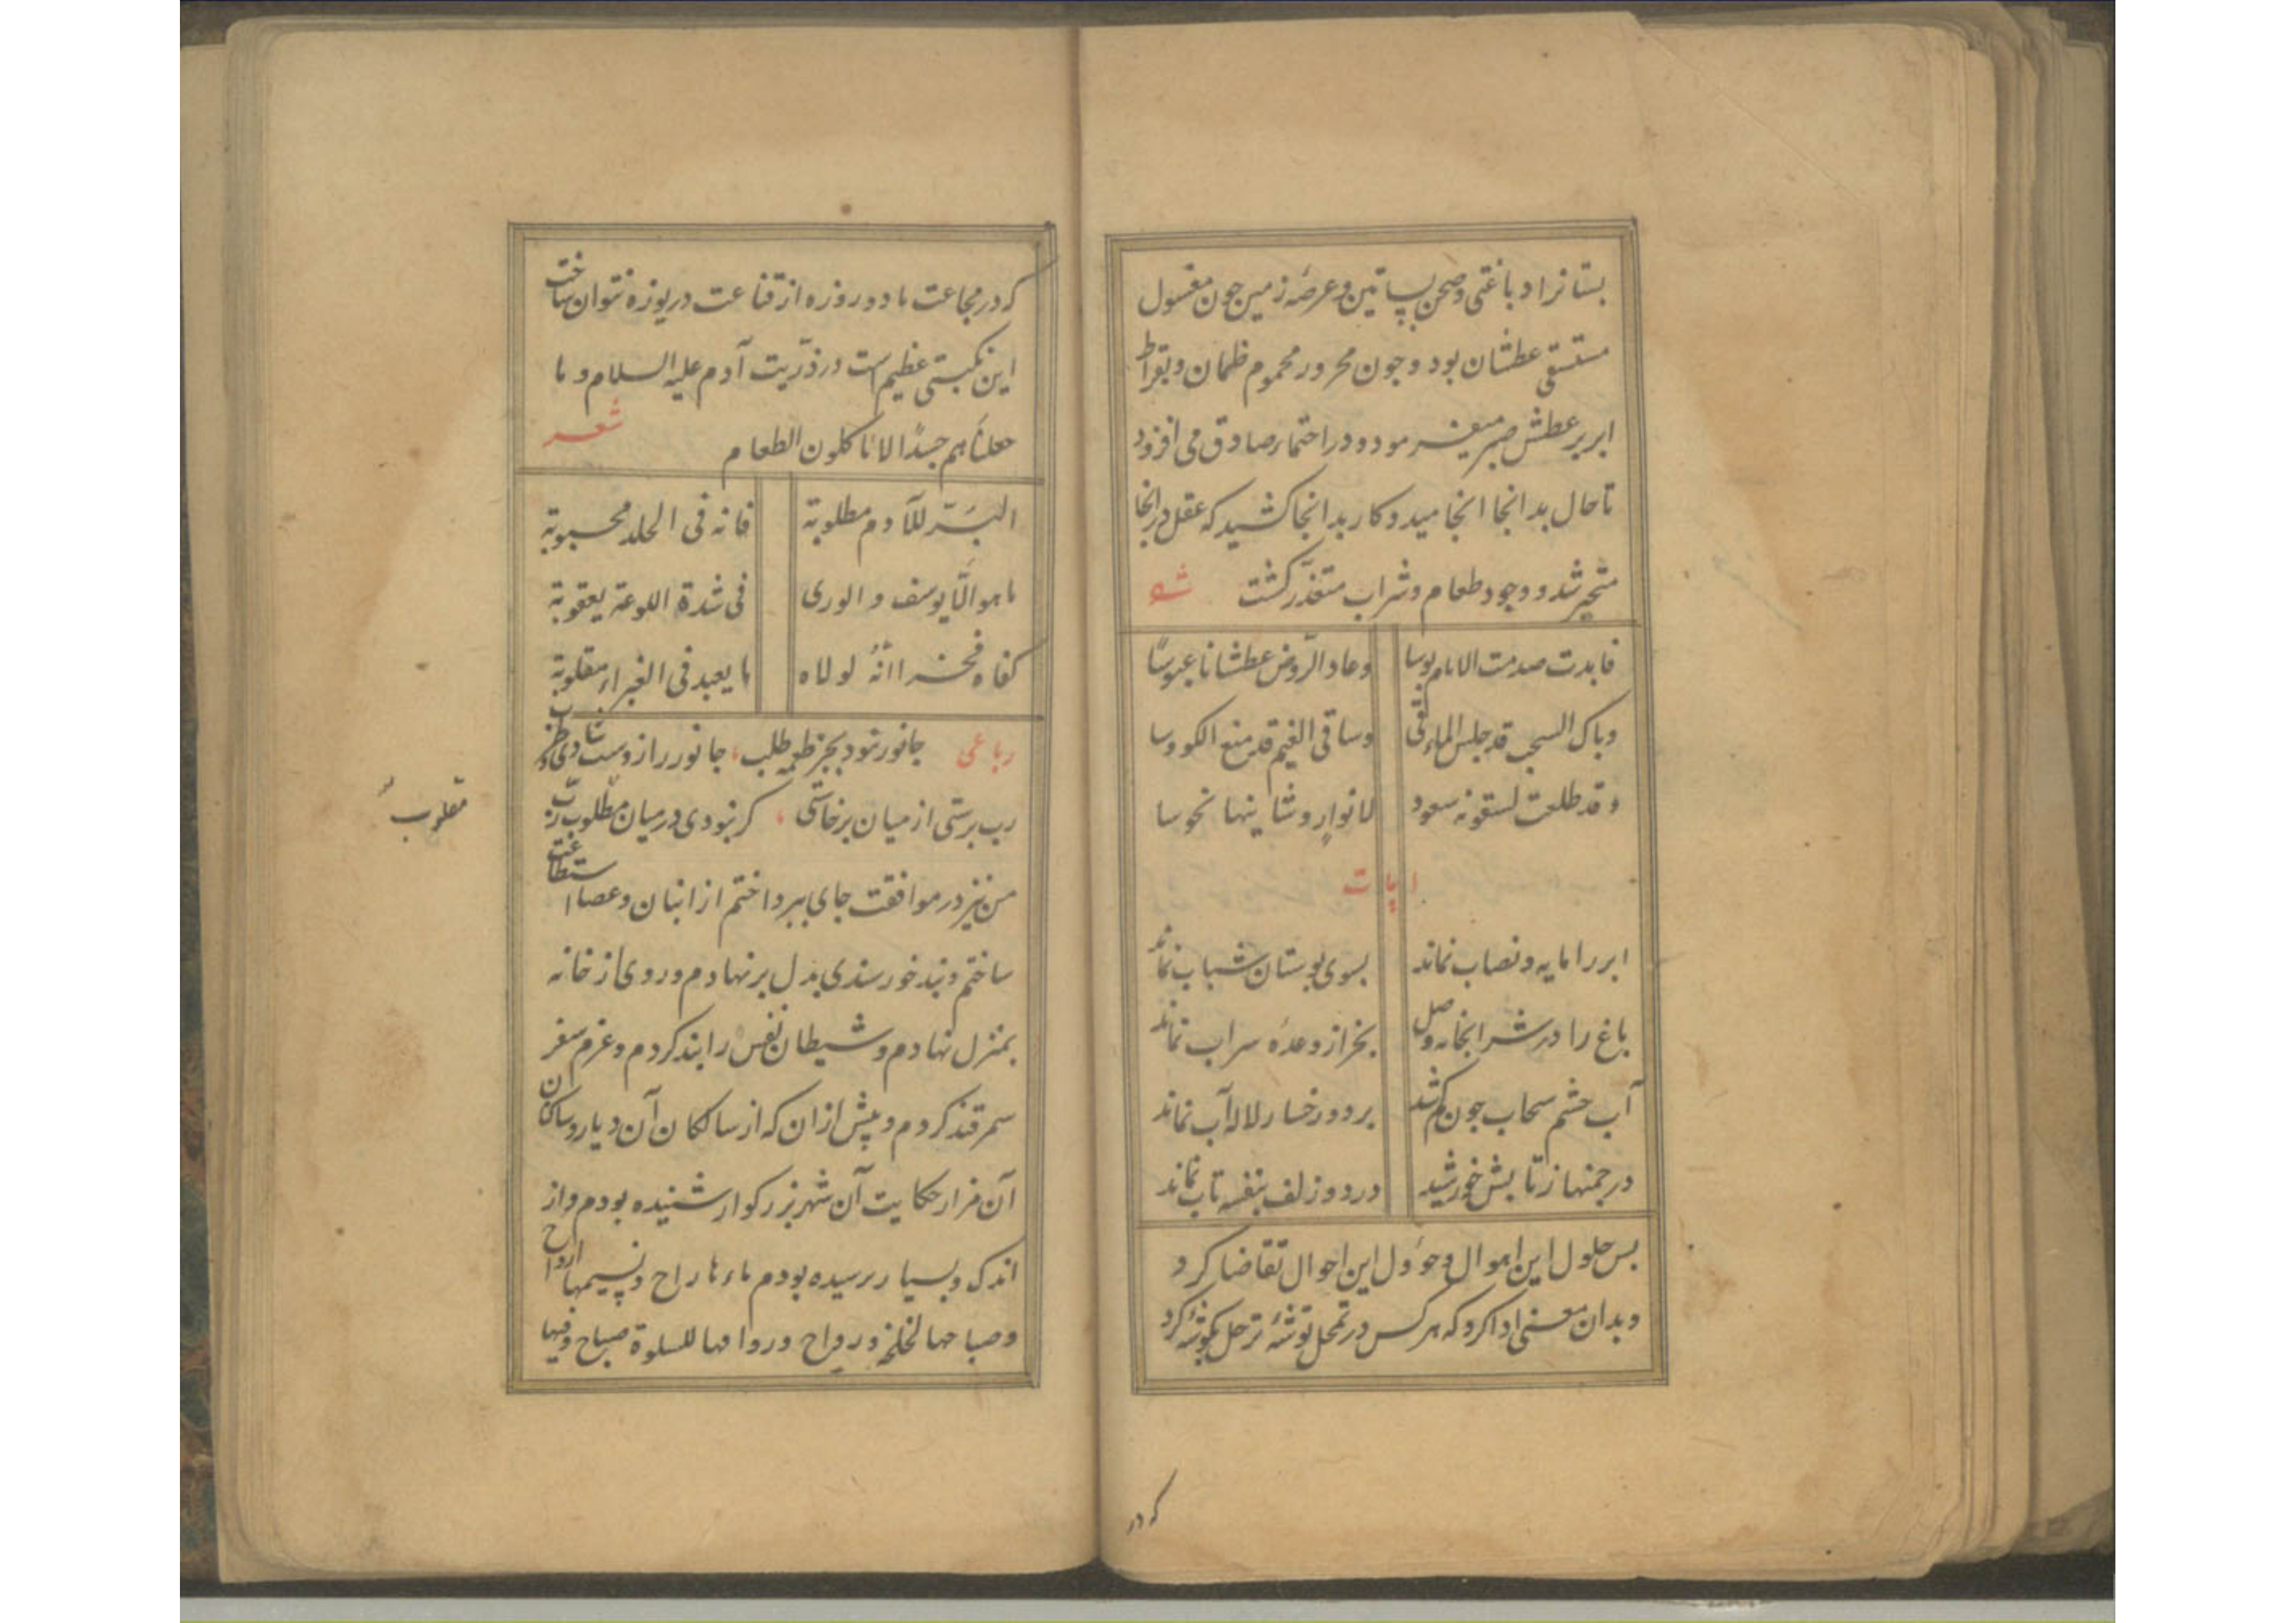 بستانرا دباغتی و صحن بساتین و عرصهٔ زمین جون مغسول
مستسقی عطشان بود و جون محرور محموم ظمان و بقراط
ابر بر عطش صبر میفرمود و در احتماء صادق می افزود
تا حال بدانجا انجامید و کار بدانجا کشید که عقل در انجا
متحیر شد و وجود طعام و شراب متعذر کشت شعر
فابدت صدمت الایام بوسا وعاد الروض عطشانا عبوسا
وباک السحب قد حبس الماقی وساقی الغیم قد منع الکووسا
وقد طلعت سعود لانوار وشاینها نحوسا
ابیات
ابر را مایه و نصاب نماند بسوی بوستان شباب نماند
باغ را در شرابخانه وصل بخر از وعدهٔ سراب نماند
آب جشم سحاب جون کم شد بر دو رخسار لاله آب نماند
در جمنها ز تابش خورشید در دو زلف بنفشه تاب نماند
بس حلول این اهوال و حوٴول این احوال تقاضا کرد
و بدان معنی ادا کرد که هر کس در تمحل توشهٔ ترحل بکوشهٔ کرد
که در
که در مجاعت ما دو روزه از قناعت دریوزه نتوان ساخت
این نکبتی عظیم است در ذریت آدم علیه السلام و ما
جعلناهم جسدًا الا یاکلون الطعام شعر
البُرّ للآدم مطلوبة فانه فی الخلد محبوبة
ما هو الّا یوسف و الوری فی شدة اللوعة یعقوبة
کفاه فخرا انّهُ لولاه ما یعبد فی الغبراء مقلوبة
رباعی جانور نبود بجز طعمه طلب، جانور را زوست شادی و طرب
رب برستی از میان برخاستی ، کر نبودی در میان مطلوب رب
مقلوب
من نیز در موافقت جای ببرداختم از انبان و عصا استطاعت
ساختم و بند خورسندی بدل بر نهادم و روی از خانه
بمنزل نهادم و شیطان نفس را بند کردم و عزم سفر
سمرقند کردم و پیش ازان که از سالکان آن دیار و ساکنان
آن مزار حکایت آن شهر بزرکوار شنیده بودم و از
اندک و بسیار برسیده بودم ماءها راح و نسیمها ارواح
وصباحها ورواح ورواحها للسلوة صباح وفیها